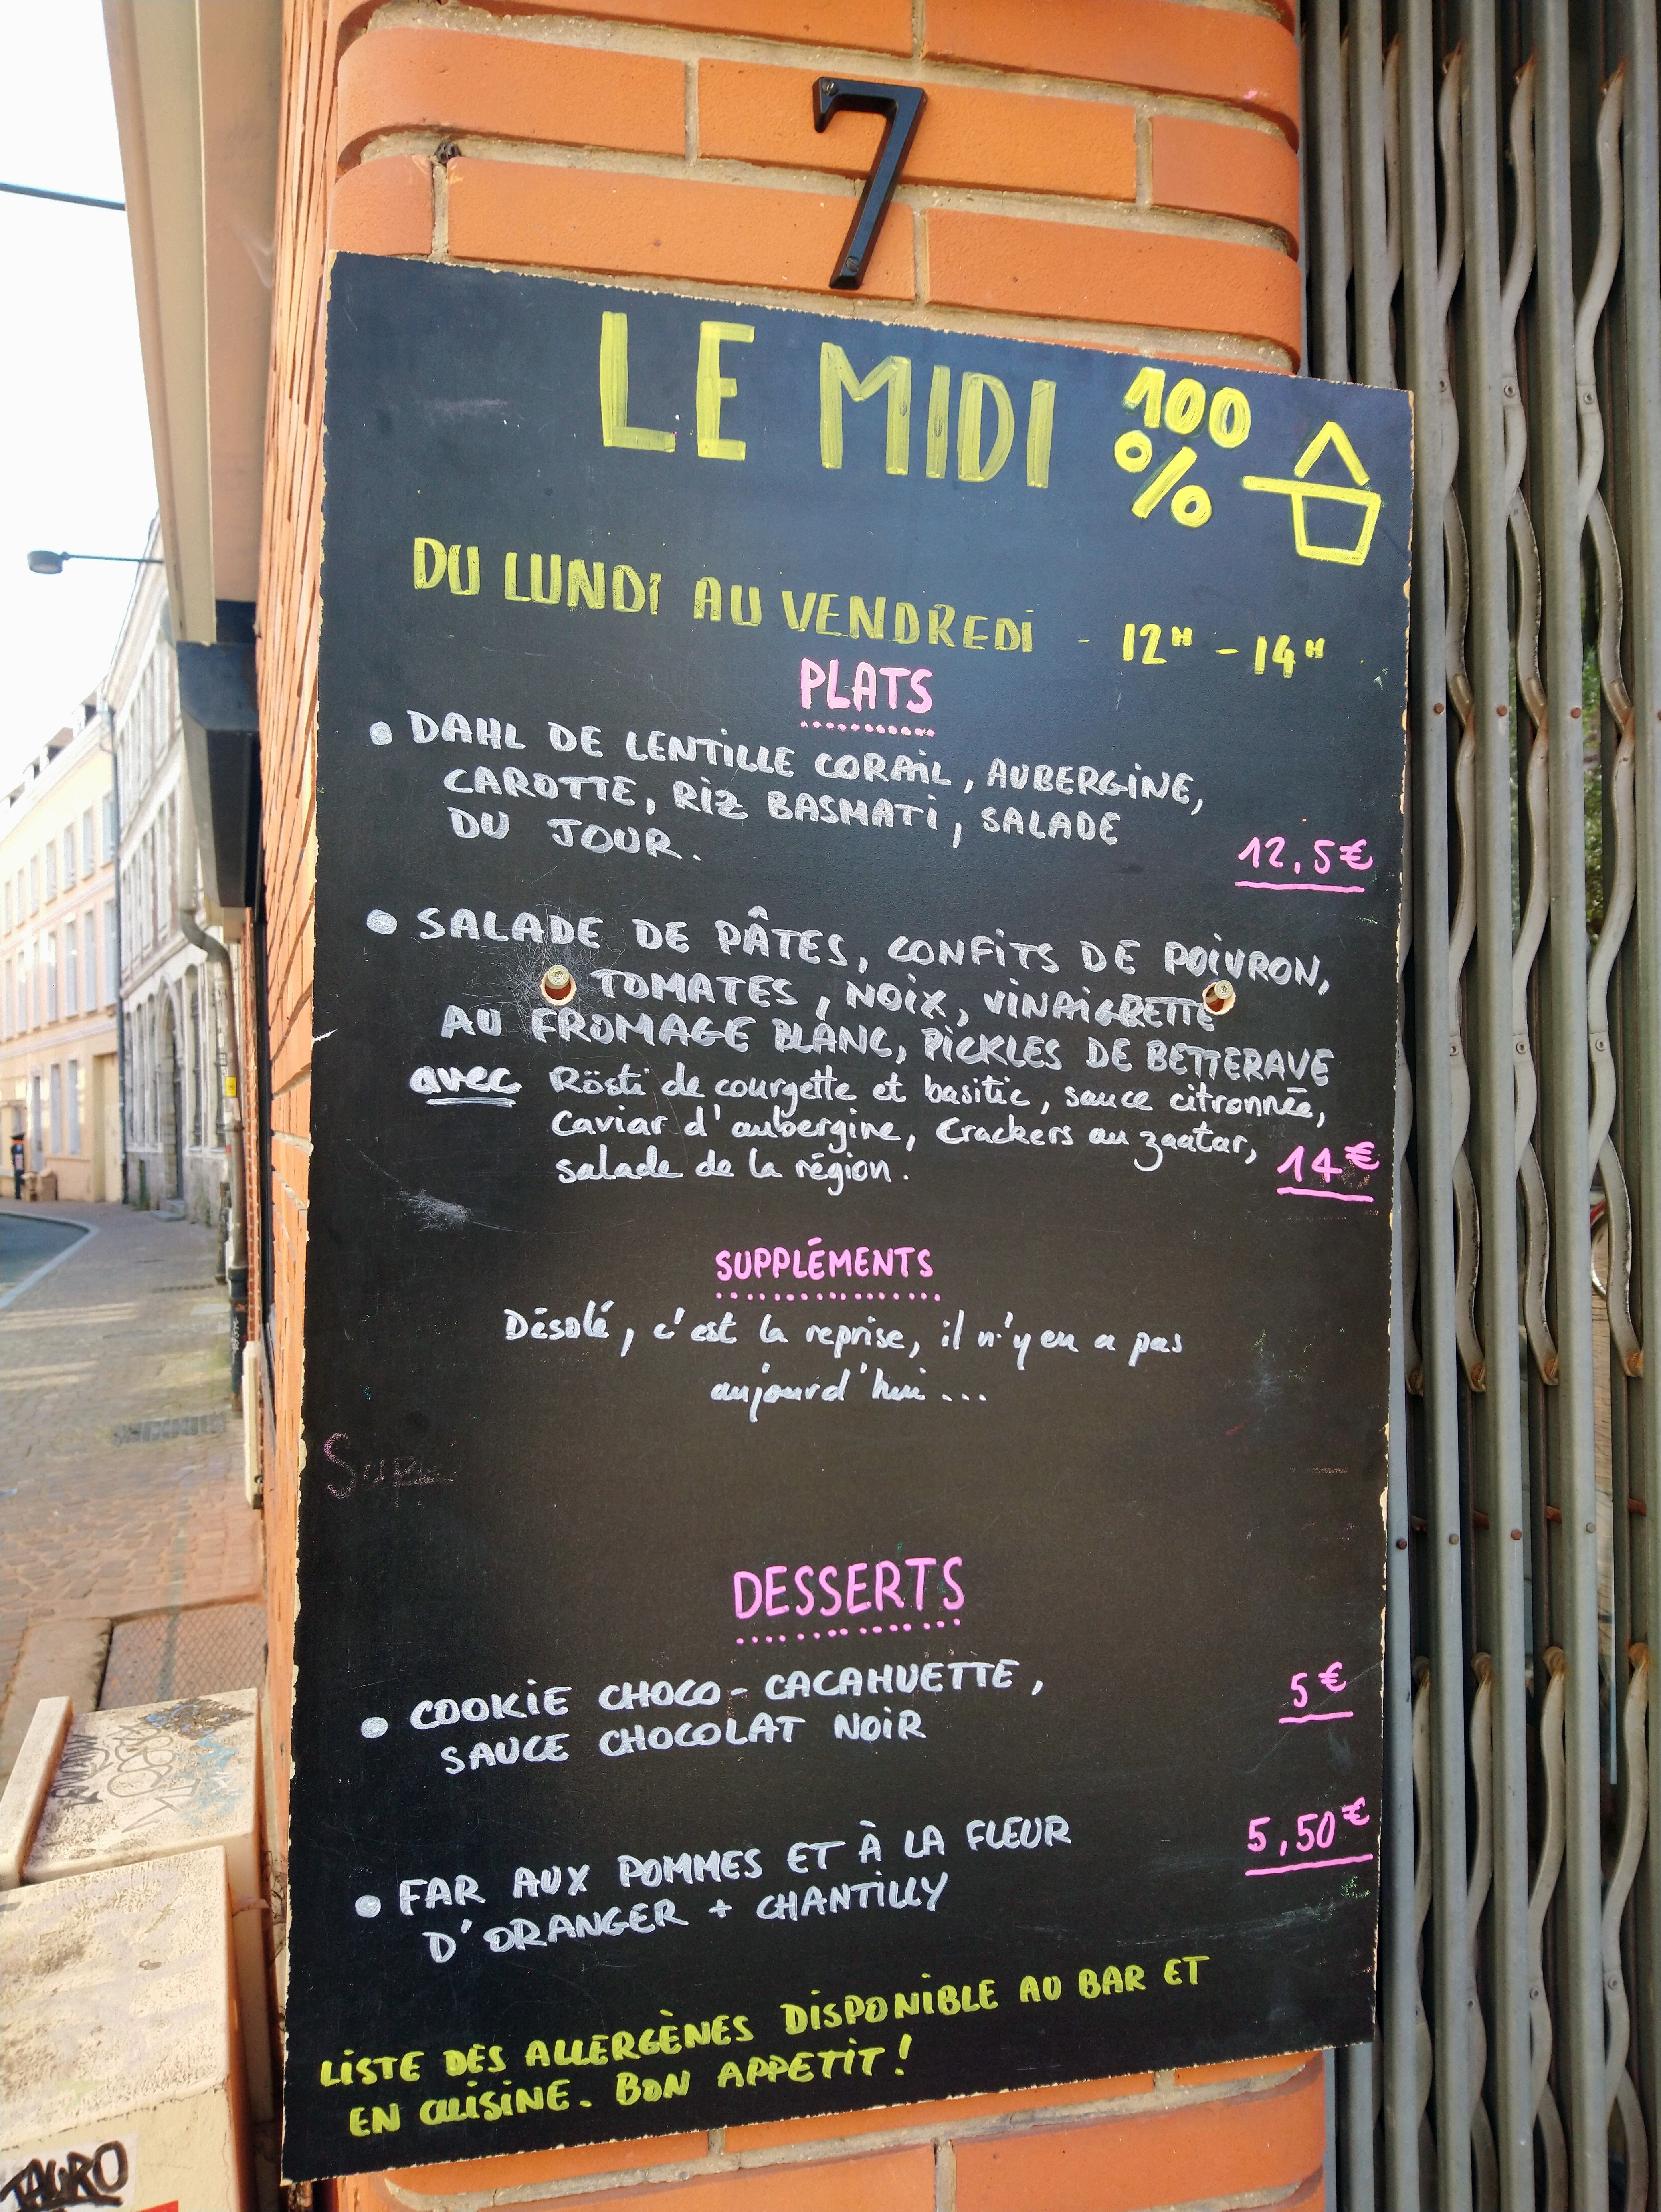 7
LE MIDI 100
%
DU LUNDI AU VENDREDI - 12H - 14H
PLATS
• DAHL DE LENTILLE CORAIL, AUBERGINE,
CAROTTE, RIZ BASMATI, SALADE
DU JOUR.
12,5€
• SALADE DE PÂTES, CONFITS DE POIVRON,
TOMATES, NOIX, VINAIGRETTE
AU FROMAGE BLANC, PICKLES DE BETTERAVE
avec Rösti de courgette et basilic, sauce citronnée,
Caviar d'aubergine, Crackers au zaatar,
salade de la région.
14€
SUPPLÉMENTS
Désolé, c'est la reprise, il n'y en a pas
aujourd'hui...
DESSERTS
• COOKIE CHOCO-CACAHUETTE,
SAUCE CHOCOLAT NOIR
5€
• FAR AUX POMMES ET À LA FLEUR
D'ORANGER + CHANTILLY
5,50€
LISTE DES ALLERGÈNES DISPONIBLE AU BAR ET
EN CUISINE. BON APPETIT!
TAURO